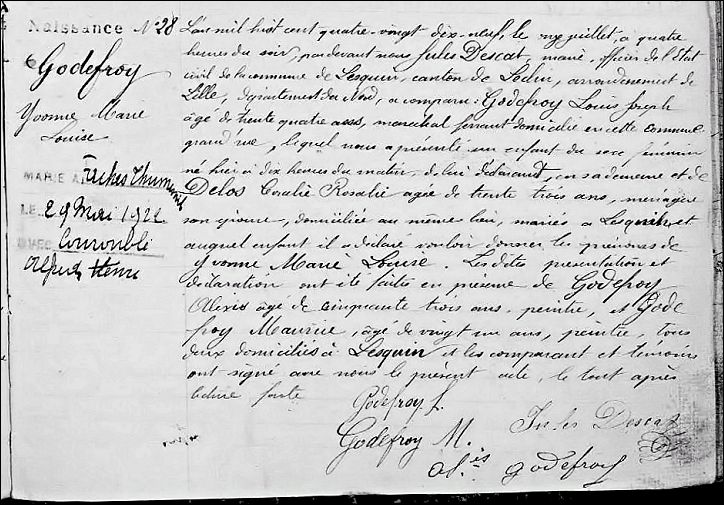 Naissance N° 28
Godefroy
Yvonne Marie
Louise
MARIE A Faches Thumesnil
LE 29 Mai 1922
AVEC Couroublé
Alfred Henri
L'an mil huit cent quatre-vingt dix-neuf, le juillet, à quatre
heures du soir, par devant nous Jules Descat, maire, officier de l'état
civil de la commune de Lesquin, canton de Seclin, arrondissement de
Lille, département du Nord, a comparu Godefroy Louis Joseph
âgé de trente quatre ans, maréchal ferrant domicilié en cette commune
grand'rue, lequel nous a présenté un enfant du sexe féminin
né hier à dix heures du matin, de lui déclarant, en sa demeure et de
Delos Coralie Rosalie agée de trente trois ans, ménagère
son épouse, domiciliée au même lieu, mariés à Lesquin, et
auquel enfant il a déclaré vouloir donner les prénoms de
Yvonne Marie Louise. Les dites présentation et
déclaration ont été faites en présence de Godefroy
Alexis âgé de cinquante trois ans, peintre, et Gode
froy Maurice, âgé de vingt un ans, peintre, tous
deux domiciliés à Lesquin et les comparant et témoins
ont signé avec nous le présent acte, le tout après
lecture faite
Godefroy L.
Jules Descat
Godefroy M.
Al.is Godefroy